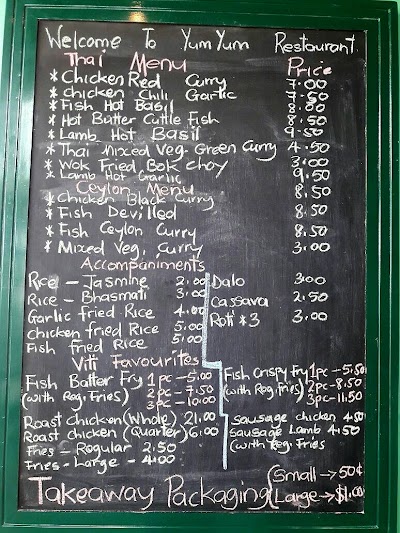 Welcome To YumYum Restaurant
Thai Menu Price
* Chicken Red Curry 7.00
* Chicken Chili Garlic 7.50
* Fish Hot Basil 8.00
* Hot Butter Cuttle Fish 8.50
* Lamb Hot Basil 9.50
* Thai Mixed Veg. Green Curry 4.50
* Wok Fried Bok Choy 3.00
* Lamb Hot Garlic 9.50
Ceylon Menu
* Chicken Black Curry 8.50
* Fish Devilled 8.50
* Fish Ceylon Curry 8.50
* Mixed Veg. Curry 3.00
Accompaniments
Rice – Jasmine 2.00
Rice – Bhasmati 3.00
Garlic fried Rice 4.00
Chicken fried Rice 5.00
Fish fried Rice 5.00
Dalo 3.00
Cassava 2.50
Roti *3 3.00
Viti Favourites
Fish Batter Fry 1pc – 5.00
(with Reg. Fries) 2pc – 7.50
3pc – 10.00
Roast Chicken (Whole) 21.00
Roast Chicken (Quarter) 6.00
Fries – Regular 2.50
Fries – Large – 4.00
Fish Crispy Fry 1pc – 5.50
(with Reg. Fries) 2pc – 8.50
3pc – 11.50
Sausage Chicken 4.50
Sausage Lamb 4.50
(with Reg. Fries
Takeaway Packaging (Small → 50¢
Large → $1.00